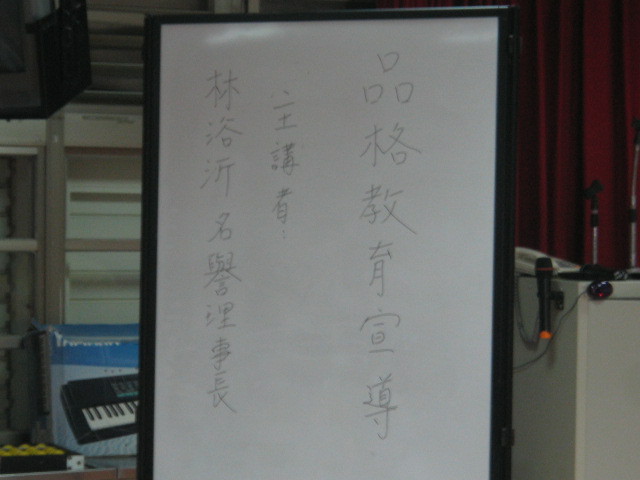 品格教育宣導
主講者:
林浴沂名譽理事長
YAMAHA